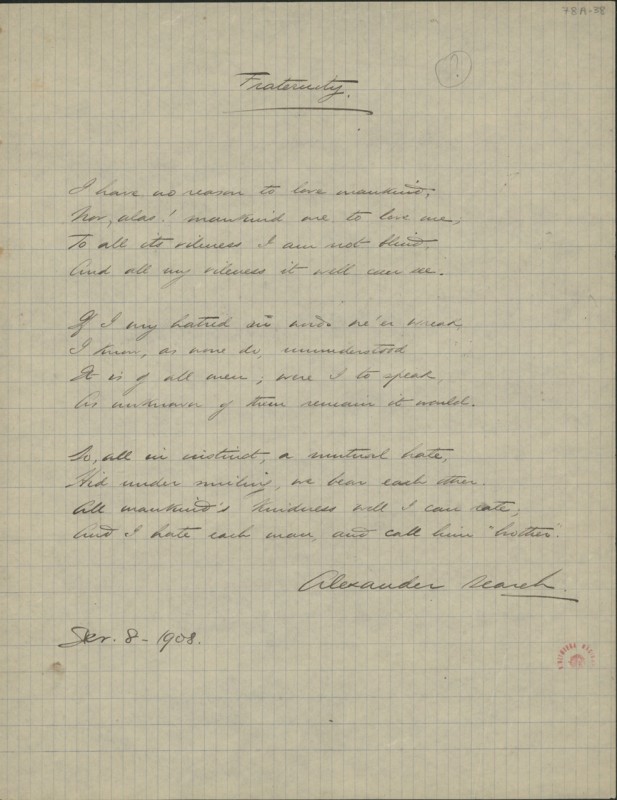 78A-38
?
Fraternity.
I have no reason to love mankind;
Nor, alas! mankind one to love me;
To all its vileness I am not blind,
And all my vileness it will can see.
If I my hatred in words ne'er wreak,
I know, as none do, ununderstood
It is of all men; were I to speak,
As unknown of them remain it would.
So, all in instinct, a mutual hate,
Hid under smiling, we bear each other.
All mankind's kindness well I can rate;
And I hate each man, and call him "brother".
Alexander Search.
8 - 1908.